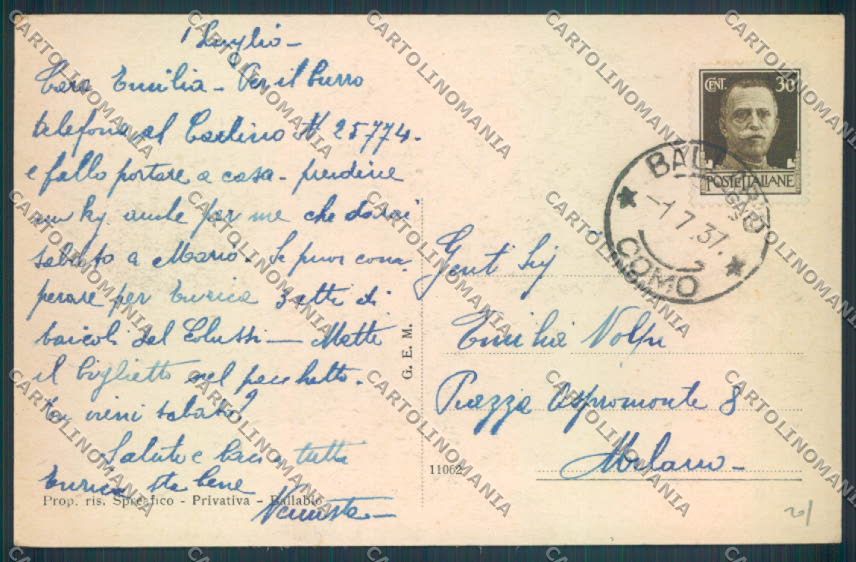 1 Luglio -
Cara Emilia - Per il burro
telefona al Carlino N 25774 -
e fallo portare a casa - prendine
un kg. anche per me che darai
sabato a Mario. Se puoi com
perare per Enrica 3 etti di
baicoli del Colussi - Metti
il biglietto nel pacchetto.
Tu vieni sabato?
Saluti e baci tutti
Enrica sta bene
Prop. ris. Spreafico - Privativa - Ballabio
G. E. M.
11062
CENT. 30
POSTE ITALIANE
BALLABIO
-1 7 37.
COMO
Gent Sig
Emilia Volpi
Piazza Aspromonte 8
Milano -
CARTOLINOMANIA